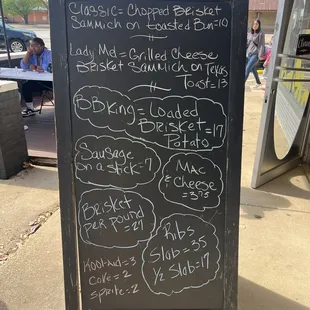 Classic = Chopped Brisket
Sammich on toasted Bun = 10
Lady Md = Grilled Cheese
Brisket Sammich on Texas
Toast = 13
BB King = Loaded
Brisket = 17
Potato
Sausage
on a stick = 7
Mac
& Cheese
= 3.75
Brisket
per pound
= 27
Ribs
Slab = 35
1/2 Slab = 17
Kool-aid = 3
Coke = 2
Sprite = 2